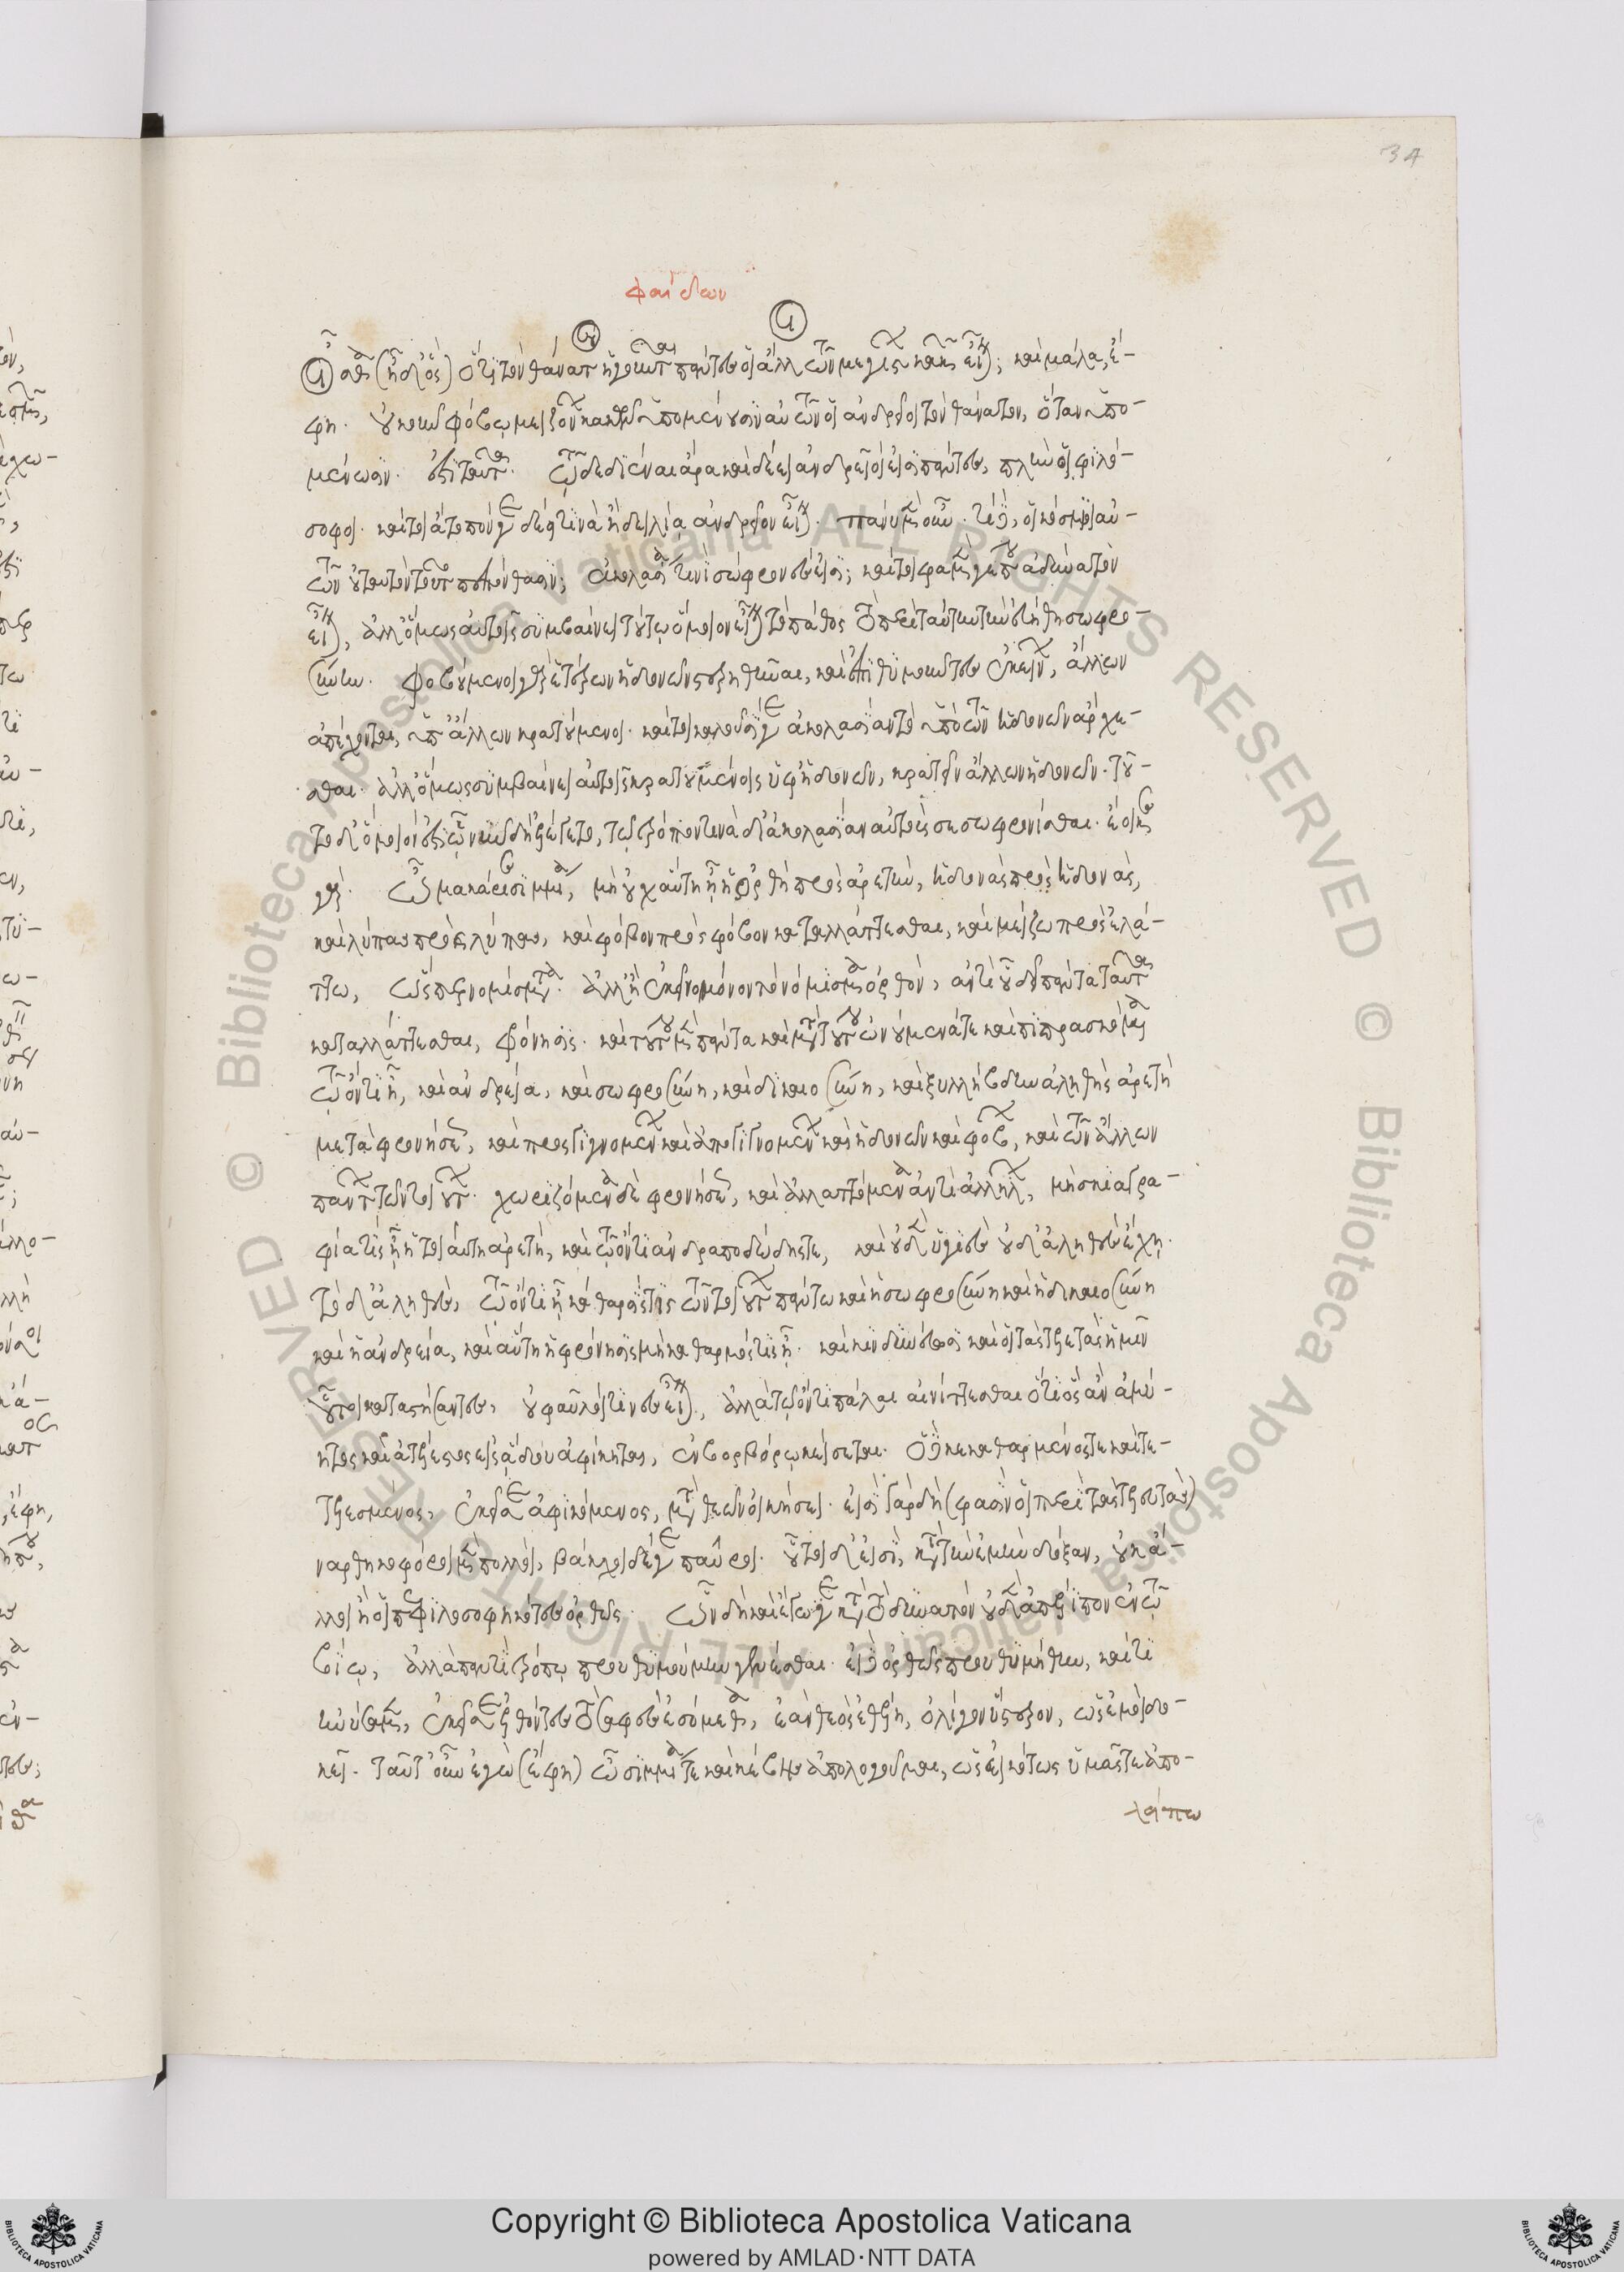 34
φαίδων
οἶσθα (ἦ δ' ὃς) ὅτι τὸν θάνατον ἡγοῦνται πάντες οἱ ἄλλοι τῶν μεγίστων κακῶν εἶναι; καὶ μάλα, ἔ-
φη. οὐκοῦν φόβῳ μειζόνων κακῶν ὑπομένουσιν αὐτῶν οἱ ἀνδρεῖοι τὸν θάνατον, ὅταν ὑπο-
μένωσιν. ἔστι ταῦτα. τῷ δεδιέναι ἄρα καὶ δέει ἀνδρεῖοί εἰσι πάντες, πλὴν οἱ φιλό-
σοφοι. καίτοι ἄτοπόν γε δέει τινὰ ἢ δειλίᾳ ἀνδρεῖον εἶναι. πάνυ μὲν οὖν. τί δὲ, οἱ κόσμιοι αὐ-
τῶν οὐ ταυτὸν τοῦτο πεπόνθασιν; ἀκολασίᾳ τινὶ σώφρονές εἰσι; καίτοι φαμὲν γέ που ἀδύνατον
εἶναι, ἀλλ' ὅμως αὐτοῖς συμβαίνει τούτῳ ὅμοιον εἶναι τὸ πάθος τὸ περὶ ταύτην τὴν εὐήθη σωφρο-
σύνην. φοβούμενοι γὰρ ἑτέρων ἡδονῶν στερηθῆναι, καὶ ἐπιθυμοῦντες ἐκείνων, ἄλλων
ἀπέχονται, ὑπ' ἄλλων κρατούμενοι. καίτοι καλοῦσί γε ἀκολασίαν τὸ ὑπὸ τῶν ἡδονῶν ἄρχε-
σθαι. ἀλλ' ὅμως συμβαίνει αὐτοῖς κρατουμένοις ὑφ' ἡδονῶν, κρατεῖν ἄλλων ἡδονῶν. τοῦ-
το δ' ὅμοιόν ἐστι ᾧ νῦν δὴ ἐλέγετο, τῷ τρόπον τινὰ δι' ἀκολασίαν αὐτοὺς σεσωφρονίσθαι. ἔοικε
γάρ. ὦ μακάριε σιμμία, μὴ οὐχ αὕτη ᾖ ἡ ὀρθὴ πρὸς ἀρετὴν, ἡδονὰς πρὸς ἡδονὰς,
καὶ λύπας πρὸς λύπας, καὶ φόβον πρὸς φόβον καταλλάττεσθαι, καὶ μείζω πρὸς ἐλά-
ττω, ὥσπερ νομίσματα. ἀλλ' ᾖ ἐκεῖνο μόνον τὸ νόμισμα ὀρθὸν, ἀντὶ οὗ δεῖ πάντα ταῦτα
καταλλάττεσθαι, φρόνησις. καὶ τούτου μὲν πάντα καὶ μετὰ τούτου ὠνούμενά τε καὶ πιπρασκόμενα
τῷ ὄντι ᾖ, καὶ ἀνδρεία, καὶ σωφροσύνη, καὶ δικαιοσύνη, καὶ ξυλλήβδην ἀληθὴς ἀρετὴ
μετὰ φρονήσεως, καὶ προσγιγνομένων καὶ ἀπογιγνομένων καὶ ἡδονῶν καὶ φόβων, καὶ τῶν ἄλλων
πάντων τῶν τοιούτων. χωριζόμενα δὲ φρονήσεως, καὶ ἀλλαττόμενα ἀντὶ ἀλλήλων, μὴ σκιαγρα-
φία τις ᾖ ἡ τοιαύτη ἀρετὴ, καὶ τῷ ὄντι ἀνδραποδώδης τε, καὶ οὐδὲν ὑγιὲς οὐδ' ἀληθὲς ἔχῃ.
τὸ δ' ἀληθὲς, τῷ ὄντι ᾖ κάθαρσίς τις τῶν τοιούτων πάντων καὶ ἡ σωφροσύνη καὶ ἡ δικαιοσύνη
καὶ ἡ ἀνδρεία, καὶ αὕτη ἡ φρόνησις μὴ καθαρμός τις ᾖ. καὶ κινδυνεύουσι καὶ οἱ τὰς τελετὰς ἡμῖν
οὗτοι καταστήσαντες, οὐ φαῦλοί τινες εἶναι, ἀλλὰ τῷ ὄντι πάλαι αἰνίττεσθαι ὅτι ὃς ἂν ἀμύ-
ητος καὶ ἀτέλεστος εἰς ᾅδου ἀφίκηται, ἐν βορβόρῳ κείσεται. ὁ δὲ κεκαθαρμένος τε καὶ τε-
τελεσμένος, ἐκεῖσε ἀφικόμενος, μετὰ θεῶν οἰκήσει. εἰσὶ γὰρ δὴ (φασὶν οἱ περὶ τὰς τελετάς)
ναρθηκοφόροι μὲν πολλοὶ, βάκχοι δέ γε παῦροι. οὗτοι δ' εἰσὶ, κατὰ τὴν ἐμὴν δόξαν, οὐκ ἄ-
λλοι ἢ οἱ πεφιλοσοφηκότες ὀρθῶς. ὧν δὴ καὶ ἐγώ γε κατὰ τὸ δυνατὸν οὐδὲν ἀπέλιπον ἐν τῷ
βίῳ, ἀλλὰ παντὶ τρόπῳ προυθυμούμην γενέσθαι. εἰ δὲ ὀρθῶς προυθυμήθην, καί τι
ἠνύσαμεν, ἐκεῖσε ἐλθόντες τὸ σαφὲς εἰσόμεθα, ἐὰν θεὸς ἐθέλῃ, ὀλίγον ὕστερον, ὡς ἐμοὶ δο-
κεῖ. ταῦτ' οὖν ἐγὼ (ἔφη) ὦ σιμμία τε καὶ κέβης ἀπολογοῦμαι, ὡς εἰκότως ὑμᾶς τε ἀπο-
λείπω